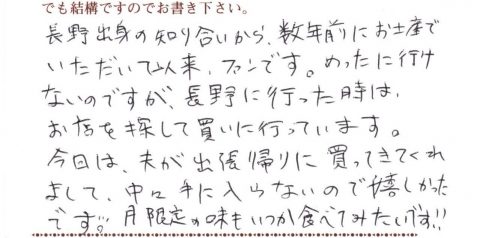 でも結構ですのでお書き下さい。
長野出身の知り合いから、数年前にお土産で
いただいて以来、ファンです。めったに行け
ないのですが、長野に行った時は、
お店を探して買いに行っています。
今日は、夫が出張帰りに買ってきてくれ
まして、中々手に入らないので嬉しかった
です!! 月限定の味もいつか食べてみたいです!!